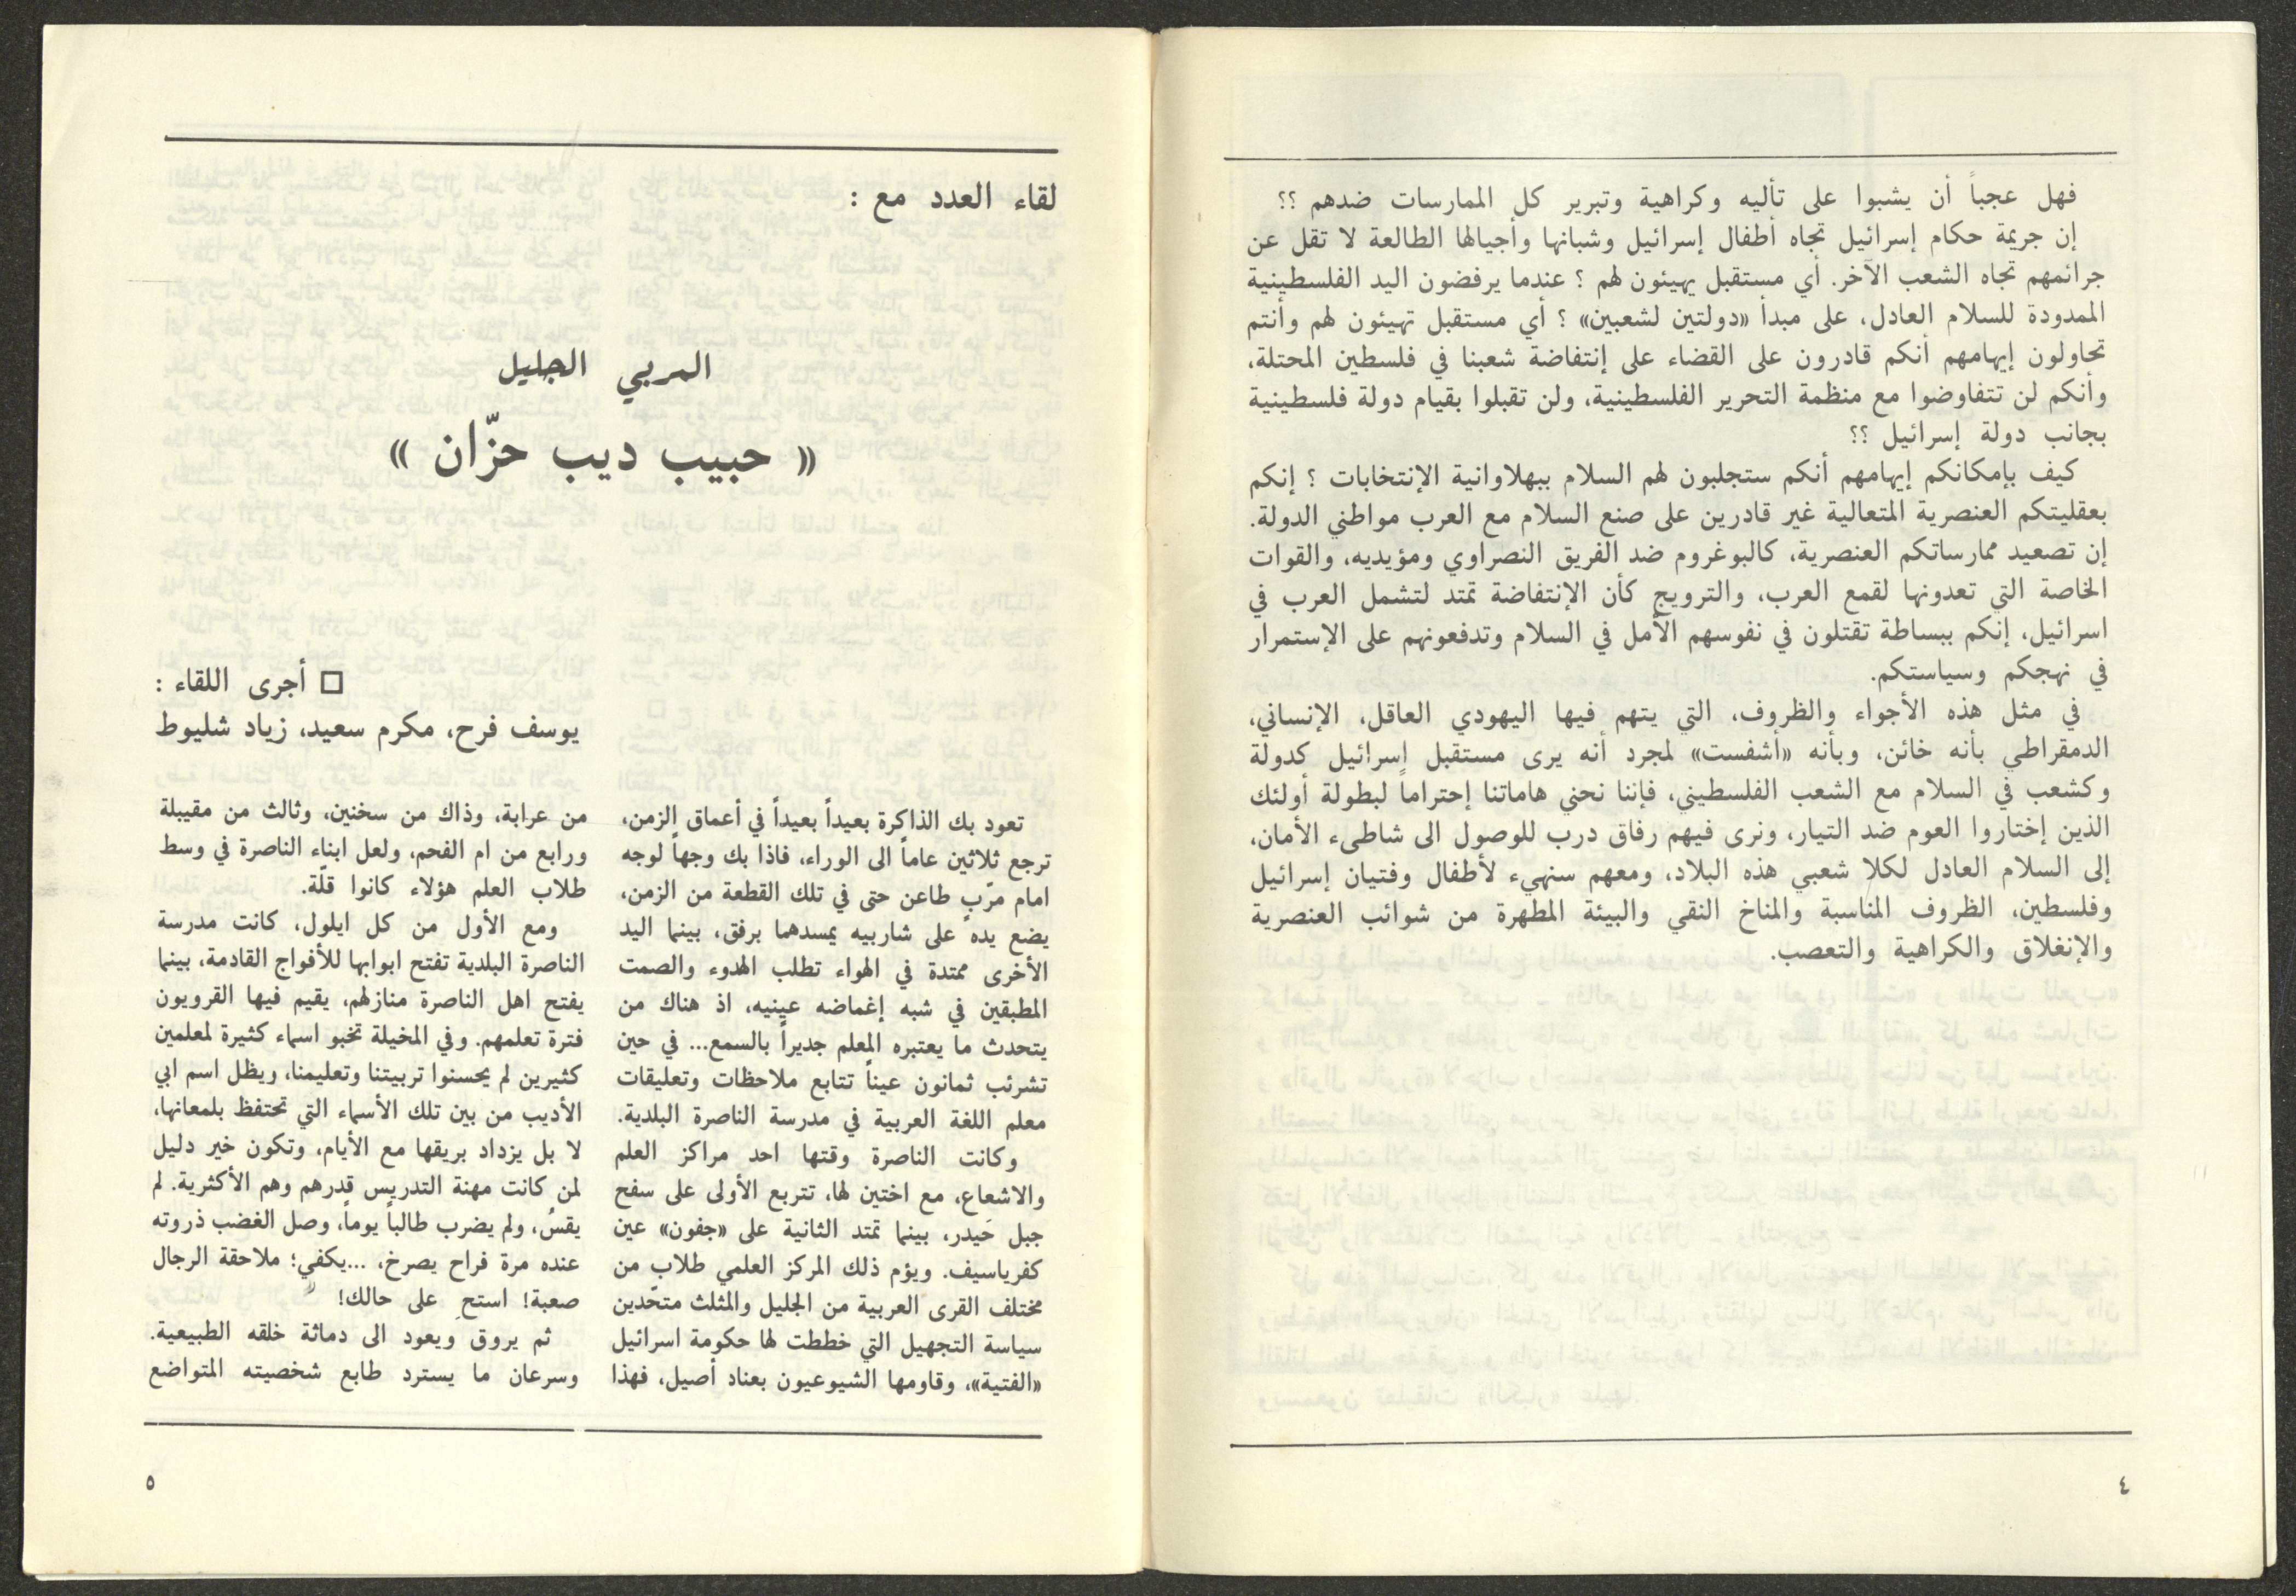 فهل عجباً أن يشبوا على تأليه وكراهية وتبرير كل الممارسات ضدهم ؟؟
إن جريمة حكام إسرائيل تجاه أطفال إسرائيل وشبانها وأجيالها الطالعة لا تقل عن
جرائمهم تجاه الشعب الآخر. أي مستقبل يهيئون لهم ؟ عندما يرفضون اليد الفلسطينية
الممدودة للسلام العادل، على مبدأ «دولتين لشعبين» ؟ أي مستقبل تهيئون لهم وأنتم
تحاولون إيهامهم أنكم قادرون على القضاء على إنتفاضة شعبنا في فلسطين المحتلة،
وأنكم لن تتفاوضوا مع منظمة التحرير الفلسطينية، ولن تقبلوا بقيام دولة فلسطينية
بجانب دولة إسرائيل ؟؟
كيف بإمكانكم إيهامهم أنكم ستجلبون لهم السلام ببهلاوانية الإنتخابات ؟ إنكم
بعقليتكم العنصرية المتعالية غير قادرين على صنع السلام مع العرب مواطني الدولة.
إن تصعيد ممارساتكم العنصرية، كالبوغروم ضد الفريق النصراوي ومؤيديه، والقوات
الخاصة التي تعدونها لقمع العرب، والترويج كأن الإنتفاضة تمتد لتشمل العرب في
اسرائيل، إنكم ببساطة تقتلون في نفوسهم الأمل في السلام وتدفعونهم على الإستمرار
في نهجكم وسياستكم.
في مثل هذه الأجواء والظروف، التي يتهم فيها اليهودي العاقل، الإنساني،
الدمقراطي بأنه خائن، وبأنه «أشفست» لمجرد أنه يرى مستقبل إسرائيل كدولة
وكشعب في السلام مع الشعب الفلسطيني، فإننا نحني هاماتنا إحتراماً لبطولة أولئك
الذين إختاروا العوم ضد التيار، ونرى فيهم رفاق درب للوصول الى شاطىء الأمان،
إلى السلام العادل لكلا شعبي هذه البلاد، ومعهم سنهيء لأطفال وفتيان إسرائيل
وفلسطين، الظروف المناسبة والمناخ النقي والبيئة المطهرة من شوائب العنصرية
والإنغلاق والكراهية والتعصب.
٤
لقاء العدد مع :
المربي الجليل
« حبيب ديب حزّان »
□ أجرى اللقاء :
يوسف فرح، مكرم سعيد، زياد شليوط
تعود بك الذاكرة بعيداً بعيداً في أعماق الزمن،
ترجع ثلاثين عاماً الى الوراء، فاذا بك وجهاً لوجه
امام مرّبٍ طاعن حتى في تلك القطعة من الزمن،
يضع يده على شاربيه يمسدهما برفق، بينما اليد
الأخرى ممتدة في الهواء تطلب الهدوء والصمت
المطبقين في شبه إغماضه عينيه، اذ هناك من
يتحدث ما يعتبره المعلم جديراً بالسمع... في حين
تشرئب ثمانون عيناً تتابع ملاحظات وتعليقات
معلم اللغة العربية في مدرسة الناصرة البلدية.
وكانت الناصرة وقتها احد مراكز العلم
والاشعاع، مع اختين لها، تتربع الأولى على سفح
جبل حَيدر، بينما تمتد الثانية على «جفون» عين
كفرياسيف. ويؤم ذلك المركز العلمي طلاب من
مختلف القرى العربية من الجليل والمثلث متحّدين
سياسة التجهيل التي خططت لها حكومة اسرائيل
«الفتية»، وقاومها الشيوعيون بعناد أصيل، فهذا
من عرابة، وذاك من سخنين، وثالث من مقيبلة
ورابع من ام الفحم، ولعل ابناء الناصرة في وسط
طلاب العلم هؤلاء كانوا قلّة.
ومع الأول من كل ايلول، كانت مدرسة
الناصرة البلدية تفتح ابوابها للأفواج القادمة، بينما
يفتح اهل الناصرة منازلهم، يقيم فيها القرويون
فترة تعلمهم. وفي المخيلة تخبو اسماء كثيرة لمعلمين
كثيرين لم يحسنوا تربيتنا وتعليمنا، ويظل اسم ابي
الأديب من بين تلك الأسماء التي تحتفظ بلمعانها،
لا بل يزداد بريقها مع الأيام، وتكون خير دليل
لمن كانت مهنة التدريس قدرهم وهم الأكثرية. لم
يقسُ، ولم يضرب طالباً يوماً، وصل الغضب ذروته
عنده مرة فراح يصرخ، ...يكفي؛ ملاحقة الرجال
صعبة! استحِ على حالك!
ثم يروق ويعود الى دماثة خلقه الطبيعية.
وسرعان ما يسترد طابع شخصيته المتواضع
٥